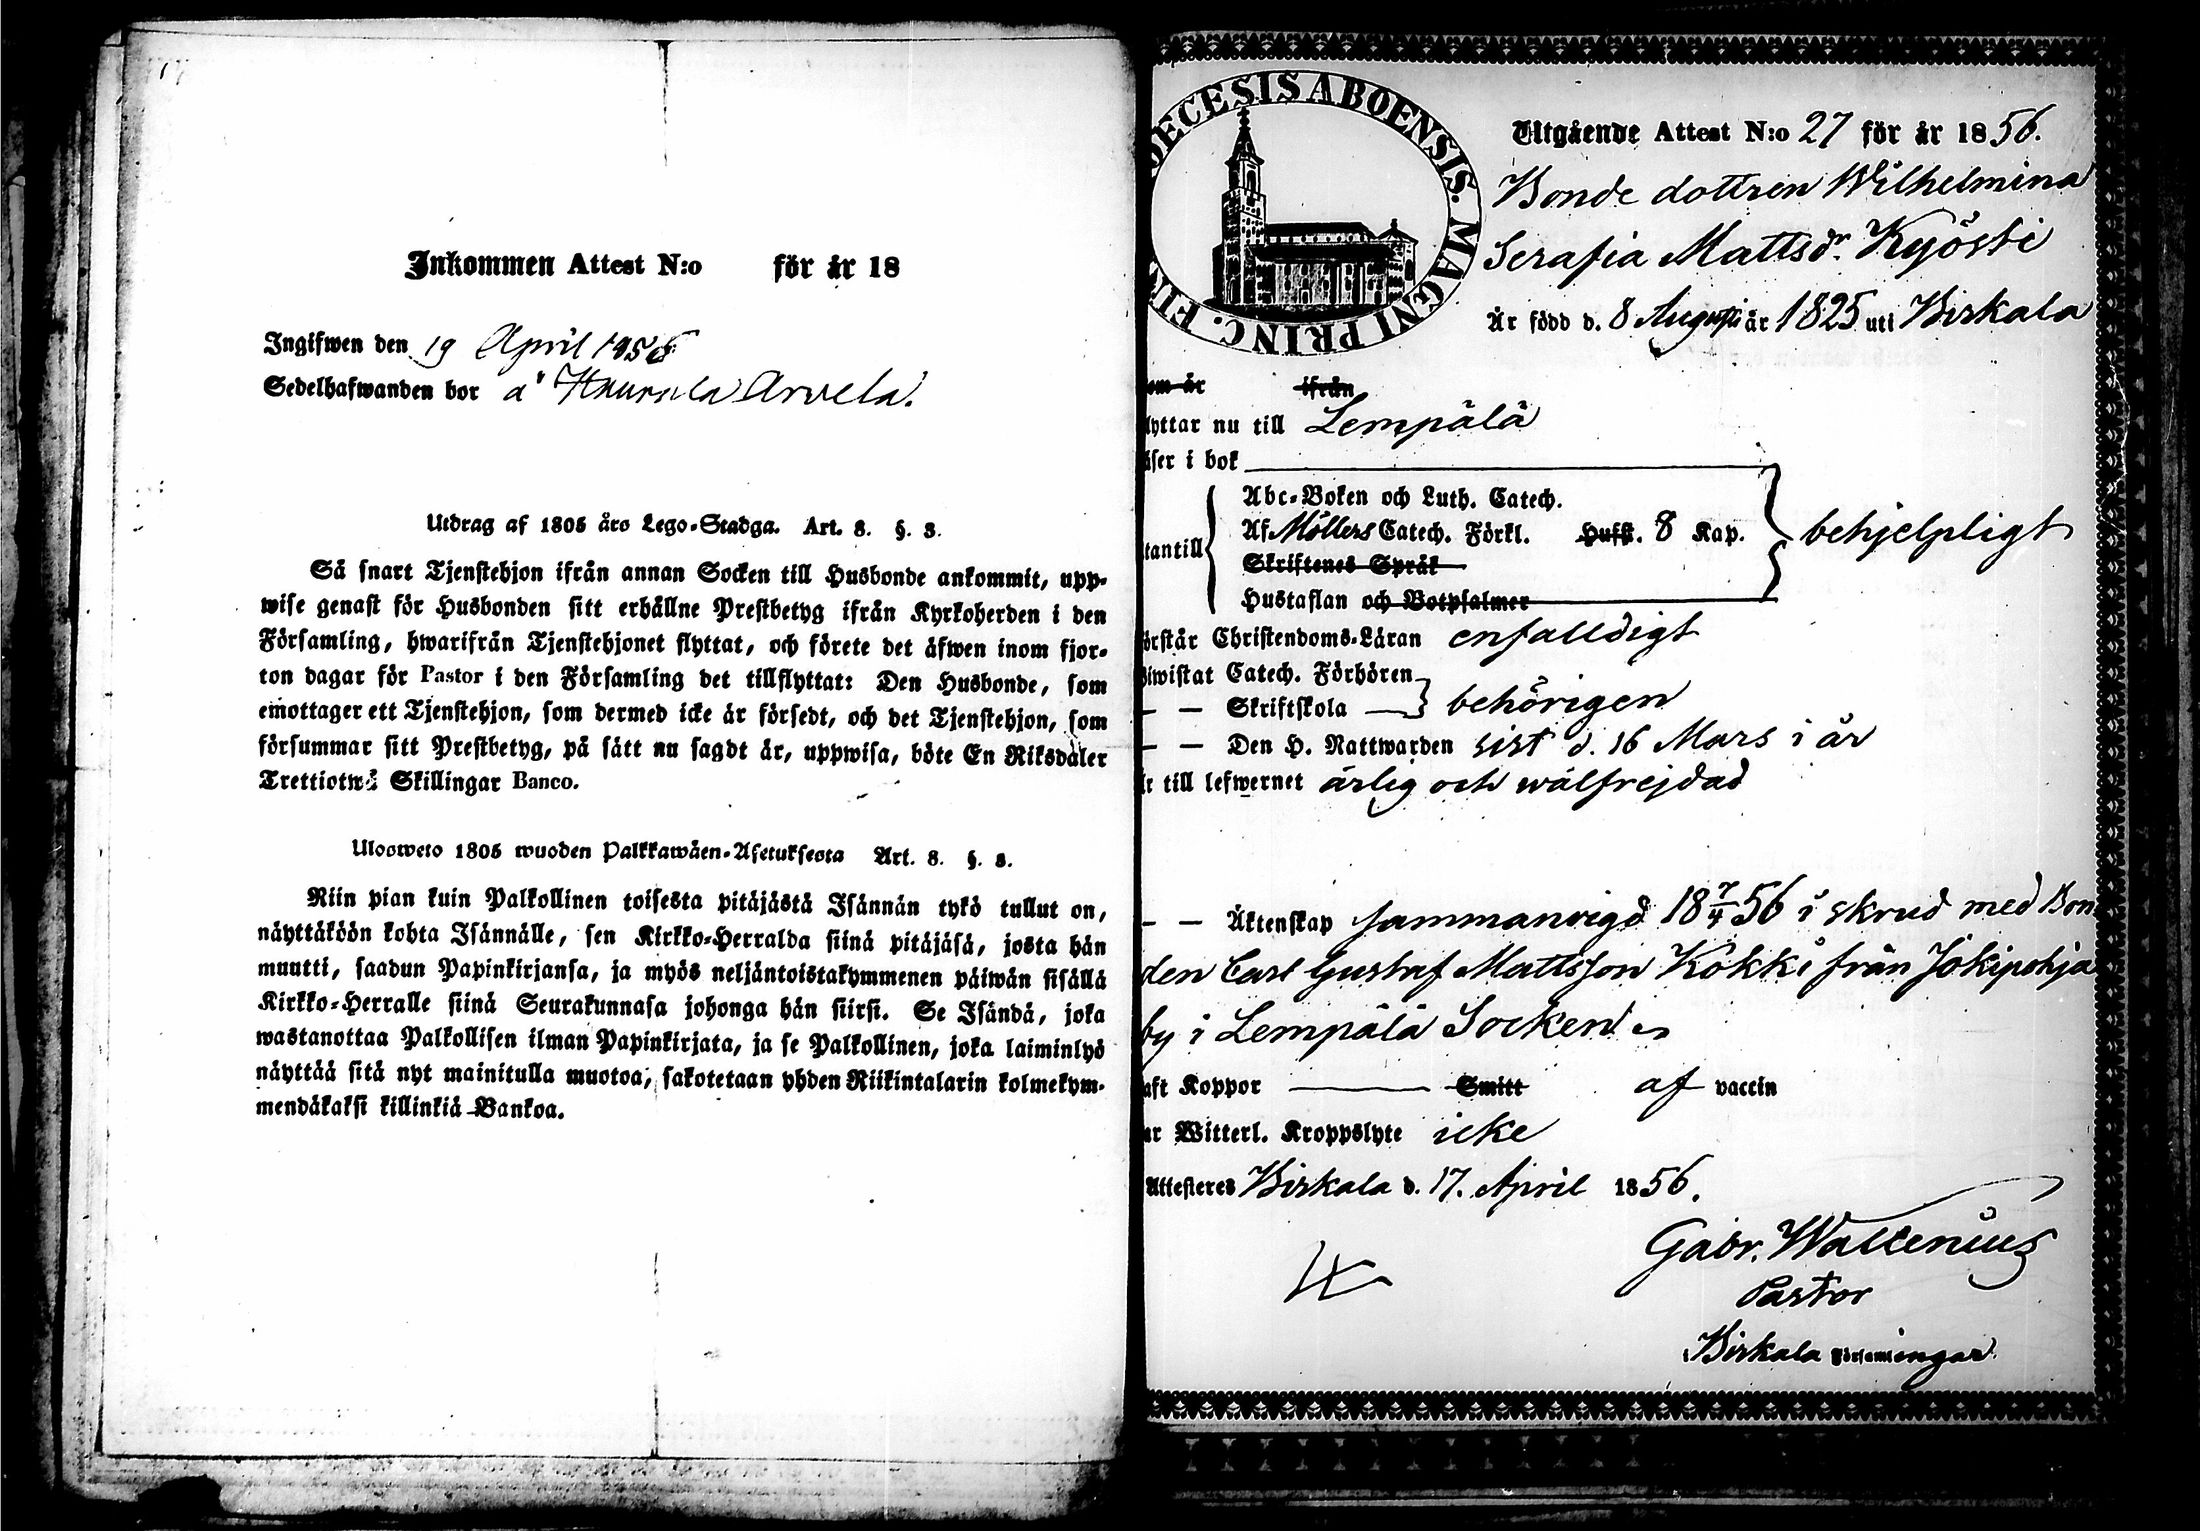 Inkommen Attest N:o för år 18
Ingifwen den 19 April 1856
Sedelhafwanden bor å Arvela.
Utdrag af 1805 års Lego-Stadga. Art. 8. §. 3.
Så snart Tjenstehjon ifrån annan Socken till Husbonde ankommit, upp-
wise genast för Husbonden sitt erhållne Prestbetyg ifrån Kyrkoherden i den
Församling, hwarifrån Tjenstehjonet flyttat, och förete det äfwen inom fjor-
ton dagar för Pastor i den Församling det tillflyttat: Den Husbonde, som
emottager ett Tjenstehjon, som dermed icke är försedt, och det Tjenstehjon, som
försummar sitt Prestbetyg, på sätt nu sagdt är, uppwisa, böte En Riksdaler
Trettiotwå Skillingar Banco.
Ulosweto 1805 wuoden Palkkawäen-Asetuksesta Art. 8. §. 3.
Niin pian kuin Palkollinen toisesta pitäjästä Isännän tykö tullut on,
näyttäköön kohta Isännälle, sen Kirkko-Herralda siinä pitäjäsä, josta hän
muutti, saadun Papinkirjansa, ja myös neljäntoistakymmenen päiwän sisällä
Kirkko-Herralle siinä Seurakunnasa johonga hän siirsi. Se Isändä, joka
wastanottaa Palkollisen ilman Papinkirjata, ja se Palkollinen, joka laiminlyö
näyttää sitä nyt mainitulla muotoa, sakotetaan yhden Riikintalarin kolmekym-
mendäkaksi killinkiä Bankoa.
DECESIS ABOENSIS. MAGNI PRINC. FIN
Utgående Attest N:o 27 för år 1856.
Bonde dottren Wilhelmina
Serafia Mattsdr. Kyösti
Är född d. 8 Augusti år 1825 uti Birkala
om är ifrån
lyttar nu till Lempälä
äser i bok
Abc-Boken och Luth. Catech.
tantill Af Möllers Catech. Förkl. Husst. 8 Kap. behjelpligt
Skriftenes Språk
Hustaflan och Botpsalmer
örstår Christendoms-Läran enfalldigt
Biwistat Catech. Förhören
— — Skriftskola — behörigen
— — Den H. Nattwarden sist d. 16 Mars i år
r till lefwernet ärlig och wälfrejdad
— — Äktenskap sammanvigd 18 7/4 56 i skrud med Bon
den Carl Gustaf Mattsson Kokki från Jokipohja
by i Lempälä Socken
aft Koppor — Smitt af vaccin
ar Witterl. Kroppslyte icke
Attesteres Birkala d. 17. April 1856.
Gabr. Wallenius
Pastor
i Birkala Församlingar.